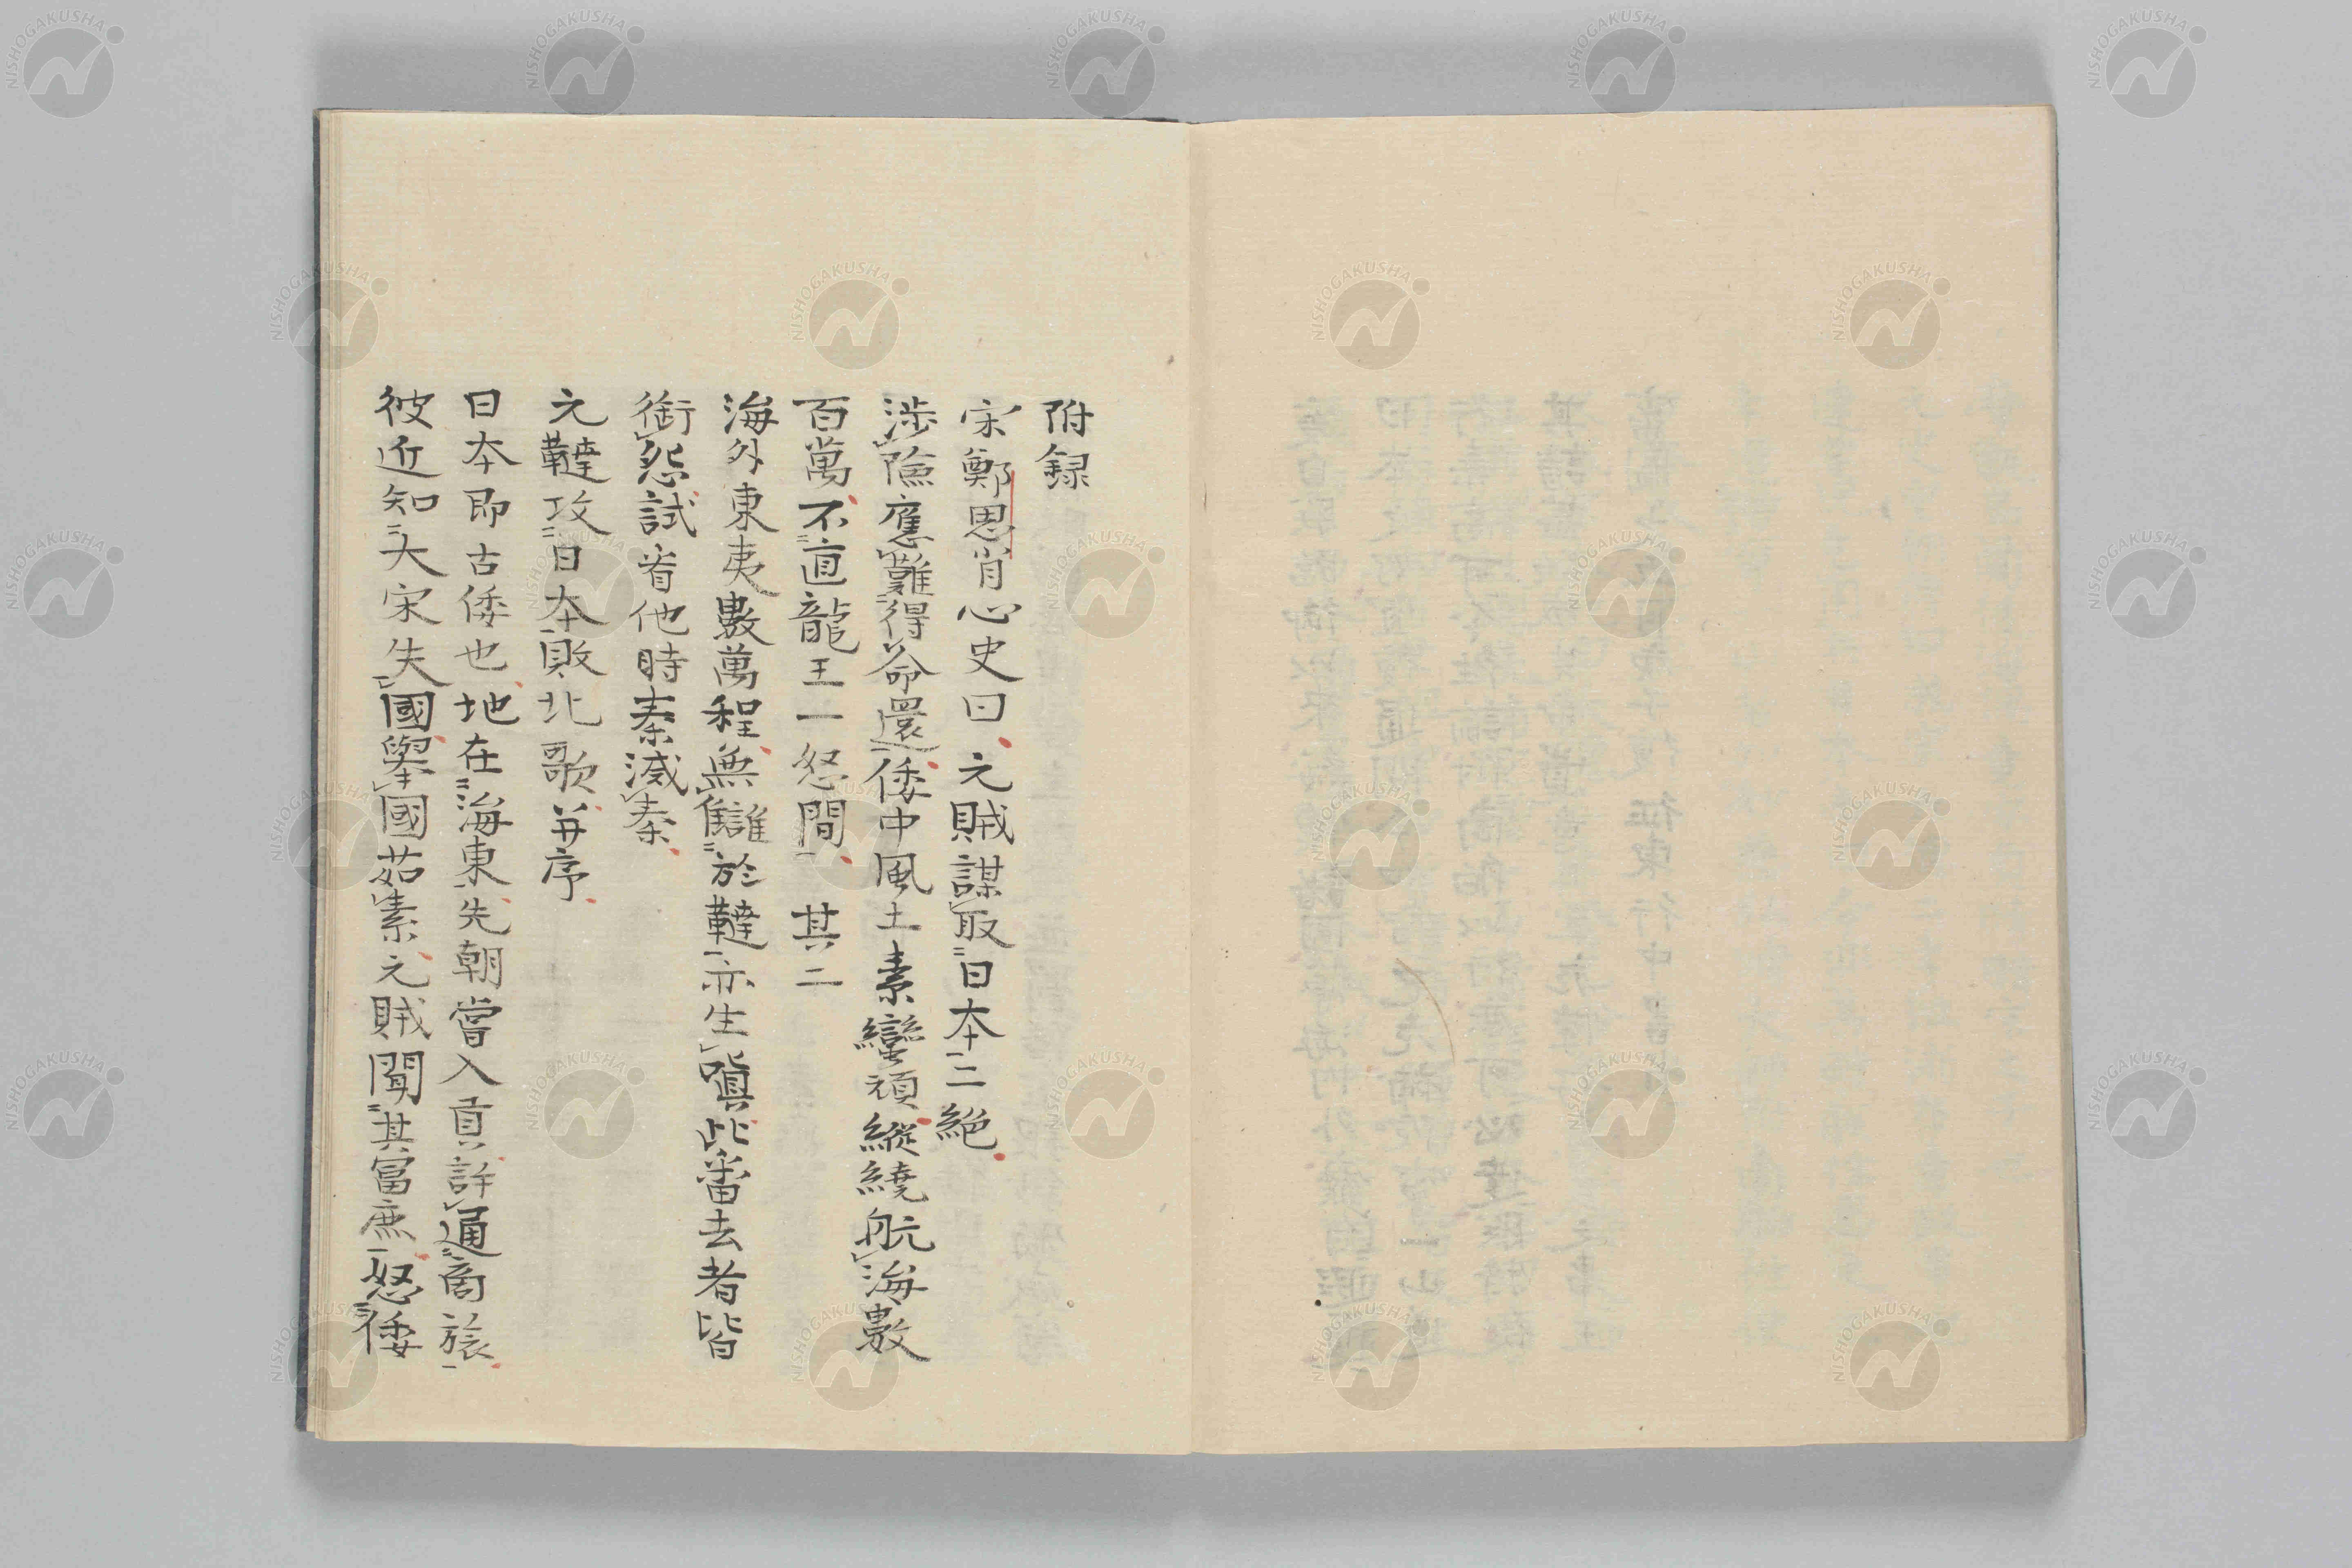 附録
宋鄭思肖心史曰元賊謀取日本二絶
渉險應難得命還倭中風土素蠻頑縱繞航海數
百萬不直龍王一怒間 其二
海外東夷數萬程無讎於韃亦生瞋此番去者皆
銜怨試看他時秦滅秦
元韃攻日本敗北歌并序
日本即古倭也地在海東先朝嘗入貢許通商旅
彼近知大宋失國舉國茹素元賊聞其富庶怒倭
NISHOGAKUSHA